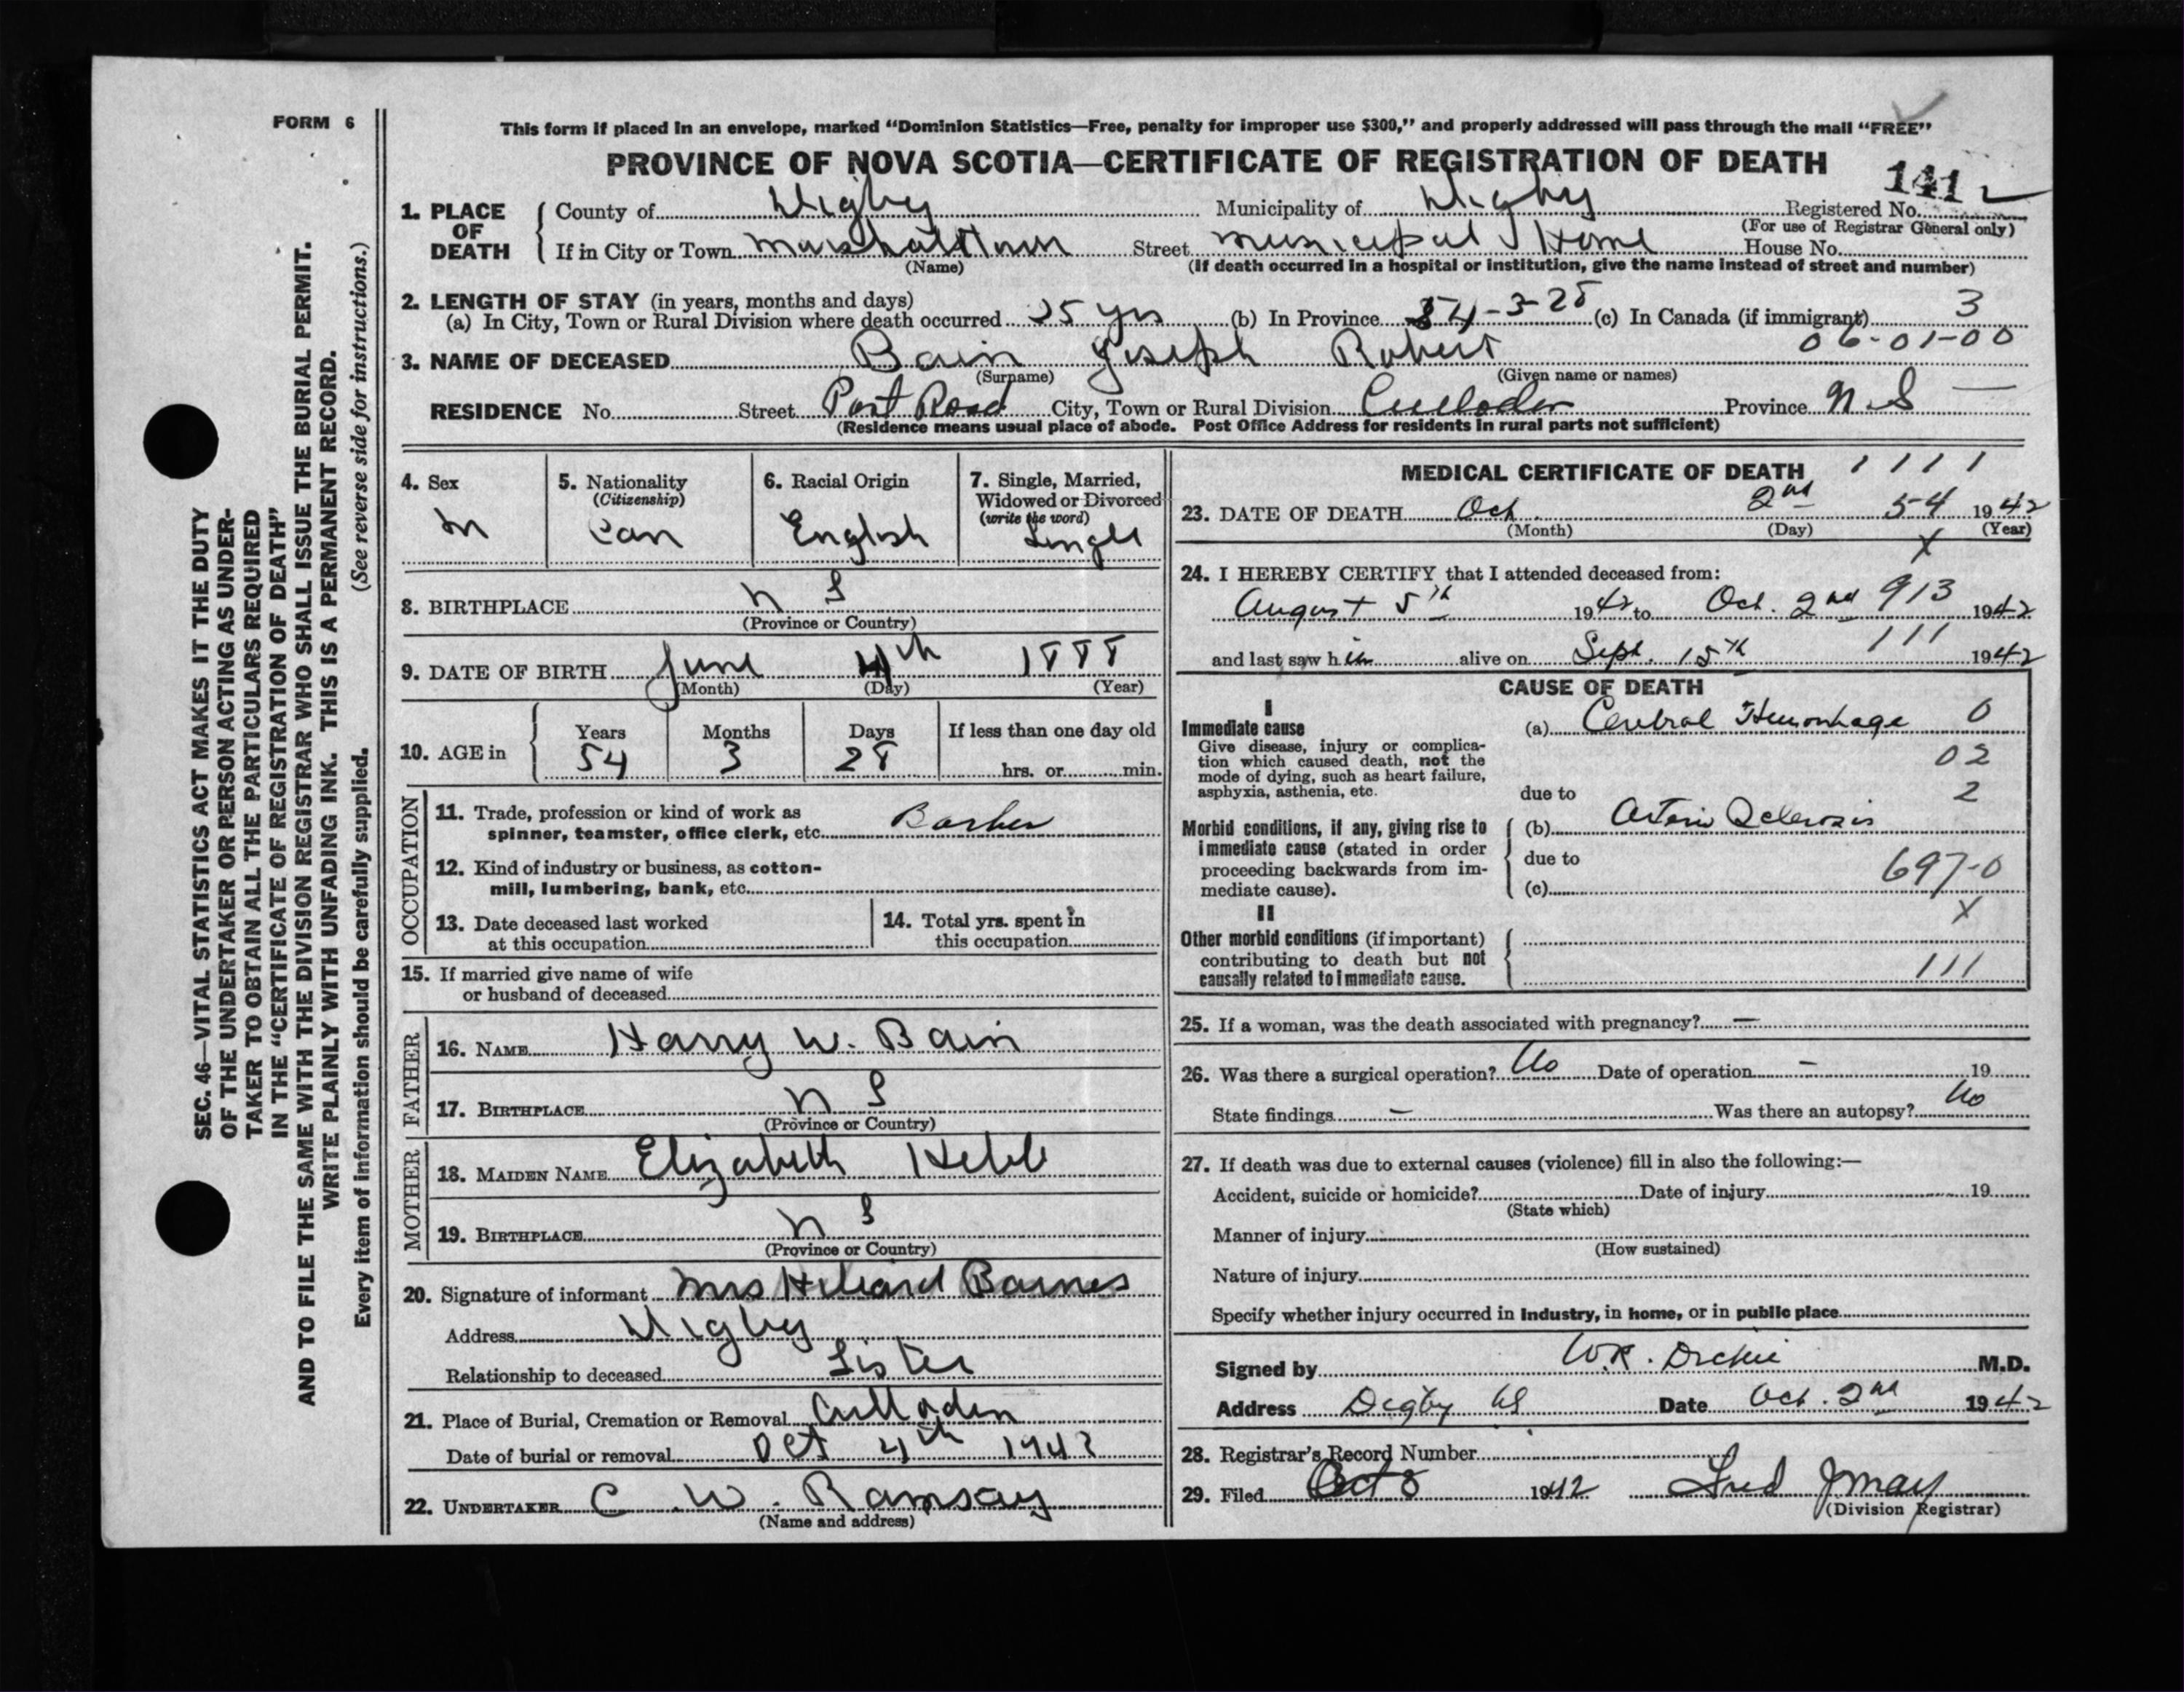 FORM 6
This form if placed in an envelope, marked “Dominion Statistics—Free, penalty for improper use $300,” and properly addressed will pass through the mail “FREE”
PROVINCE OF NOVA SCOTIA—CERTIFICATE OF REGISTRATION OF DEATH
1412
1. PLACE OF DEATH
County of Digby Municipality of Digby Registered No.
(For use of Registrar General only)
If in City or Town Marshalltown Street Municipal Home House No.
(Name) (If death occurred in a hospital or institution, give the name instead of street and number)
2. LENGTH OF STAY (in years, months and days)
(a) In City, Town or Rural Division where death occurred 25 yrs (b) In Province 54-3-28 (c) In Canada (if immigrant) 3
06-01-00
3. NAME OF DECEASED Bain Joseph Robert
(Surname) (Given name or names)
RESIDENCE No. Street Post Road City, Town or Rural Division Culloden Province N.S
(Residence means usual place of abode. Post Office Address for residents in rural parts not sufficient)
4. Sex
M
5. Nationality
(Citizenship)
Can
6. Racial Origin
English
7. Single, Married,
Widowed or Divorced
(write the word)
Single
8. BIRTHPLACE N S
(Province or Country)
9. DATE OF BIRTH June 4th 1888
(Month) (Day) (Year)
10. AGE in
Years Months Days If less than one day old
54 3 28 hrs. or min.
OCCUPATION
11. Trade, profession or kind of work as
spinner, teamster, office clerk, etc. Barber
12. Kind of industry or business, as cotton-
mill, lumbering, bank, etc.
13. Date deceased last worked
at this occupation
14. Total yrs. spent in
this occupation
15. If married give name of wife
or husband of deceased
FATHER
16. NAME Harry W. Bain
17. BIRTHPLACE N S
(Province or Country)
MOTHER
18. MAIDEN NAME Elizabeth Hebb
19. BIRTHPLACE N S
(Province or Country)
20. Signature of informant Mrs Barnes
Address Digby
Relationship to deceased Sister
21. Place of Burial, Cremation or Removal Culloden
Date of burial or removal Oct 4th 1942
22. UNDERTAKER C. W. Ramsay
(Name and address)
MEDICAL CERTIFICATE OF DEATH 1111
23. DATE OF DEATH Oct 2nd 54 1942
(Month) (Day) (Year)
X
24. I HEREBY CERTIFY that I attended deceased from:
August 5th 1942 to Oct. 2nd 913 1942
and last saw him alive on Sept. 15th 111 1942
CAUSE OF DEATH
I
Immediate cause
Give disease, injury or complica-
tion which caused death, not the
mode of dying, such as heart failure,
asphyxia, asthenia, etc.
(a) Cerebral Hemorrhage 0
02
due to 2
Morbid conditions, if any, giving rise to
immediate cause (stated in order
proceeding backwards from im-
mediate cause).
(b) Arterio Sclerosis
due to
697-0
(c)
X
II
Other morbid conditions (if important)
contributing to death but not
causally related to immediate cause.
111
25. If a woman, was the death associated with pregnancy? —
26. Was there a surgical operation? No Date of operation — 19
State findings — Was there an autopsy? No
27. If death was due to external causes (violence) fill in also the following:—
Accident, suicide or homicide? Date of injury 19
(State which)
Manner of injury
(How sustained)
Nature of injury
Specify whether injury occurred in industry, in home, or in public place
Signed by W.R. Dickie M.D.
Address Digby NS Date Oct. 2nd 1942
28. Registrar's Record Number
29. Filed Oct 8 1942 Fred J May
(Division Registrar)
SEC. 46—VITAL STATISTICS ACT MAKES IT THE DUTY
OF THE UNDERTAKER OR PERSON ACTING AS UNDER-
TAKER TO OBTAIN ALL THE PARTICULARS REQUIRED
IN THE “CERTIFICATE OF REGISTRATION OF DEATH”
AND TO FILE THE SAME WITH THE DIVISION REGISTRAR WHO SHALL ISSUE THE BURIAL PERMIT.
WRITE PLAINLY WITH UNFADING INK. THIS IS A PERMANENT RECORD.
Every item of information should be carefully supplied. (See reverse side for instructions.)